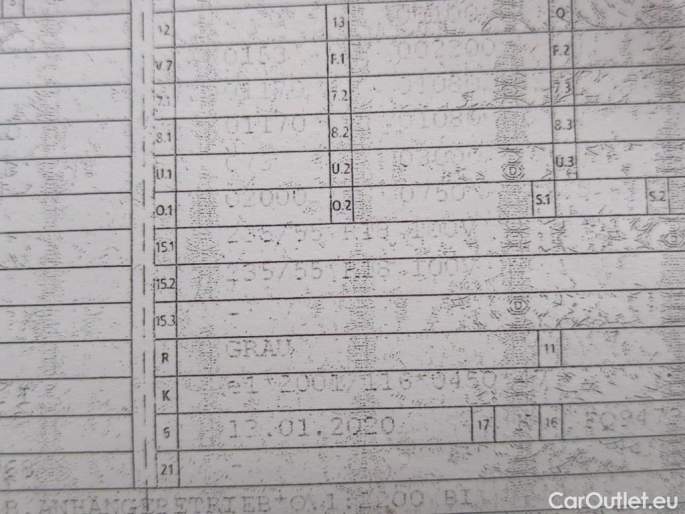 12 13 Q
V.7 0153 F.1 002200 F.2
7.1 01170 7.2 01080 7.3
8.1 01170 8.2 01080 8.3
U.1 U.2 03000 U.3
O.1 02000 O.2 0750 S.1 S.2
15.1 235/55 R18 100V
15.2 235/55 R18 100V
15.3 -
R GRAU 11
K e1*2001/116*0450
6 13.01.2020 17 K 16
21 -
ANHÄNGEBETRIEB*O.1:2200 BI
CarOutlet.eu